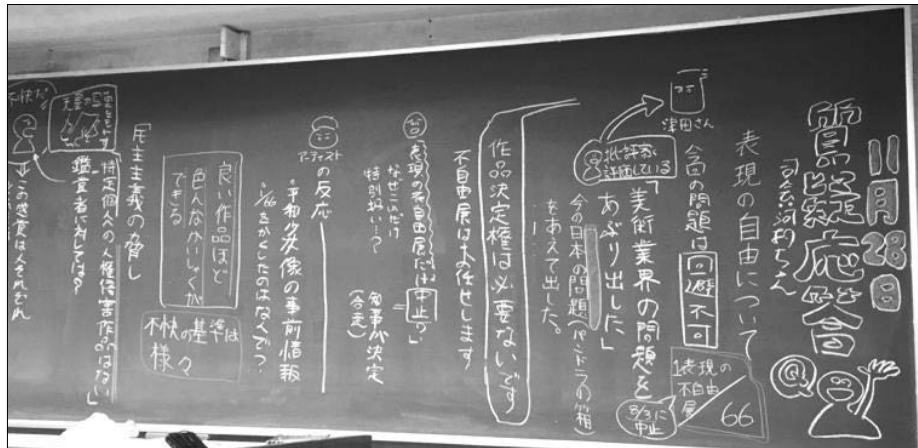 11月28日
質疑応答
司会：河村ちゃん
表現の自由について
津田さん
今回の問題は回避不可
1/66
表現の不自由展
8/3に中止
批評家評価している
「美術業界の問題を
あぶり出した」
今の日本の問題(パンドラの箱)
をあえて出した。
作品決定権は必要ないです
不自由展はお任せします
「表現の不自由展だけ中止か」
なぜこれだけ
特別扱い…?
=
知事が決定
(合意)
アーティスト
の反応
・平和の少女像の事前情報
・1/66をかくしたのはなぜ?
良い作品ほど
色んなかいしゃくが
できる
不快の基準は
様々
「民主主義の脅し
特定個人の人権侵害作品はない」
鑑賞者に対しては?
不快だ!
この感覚は人それぞれ